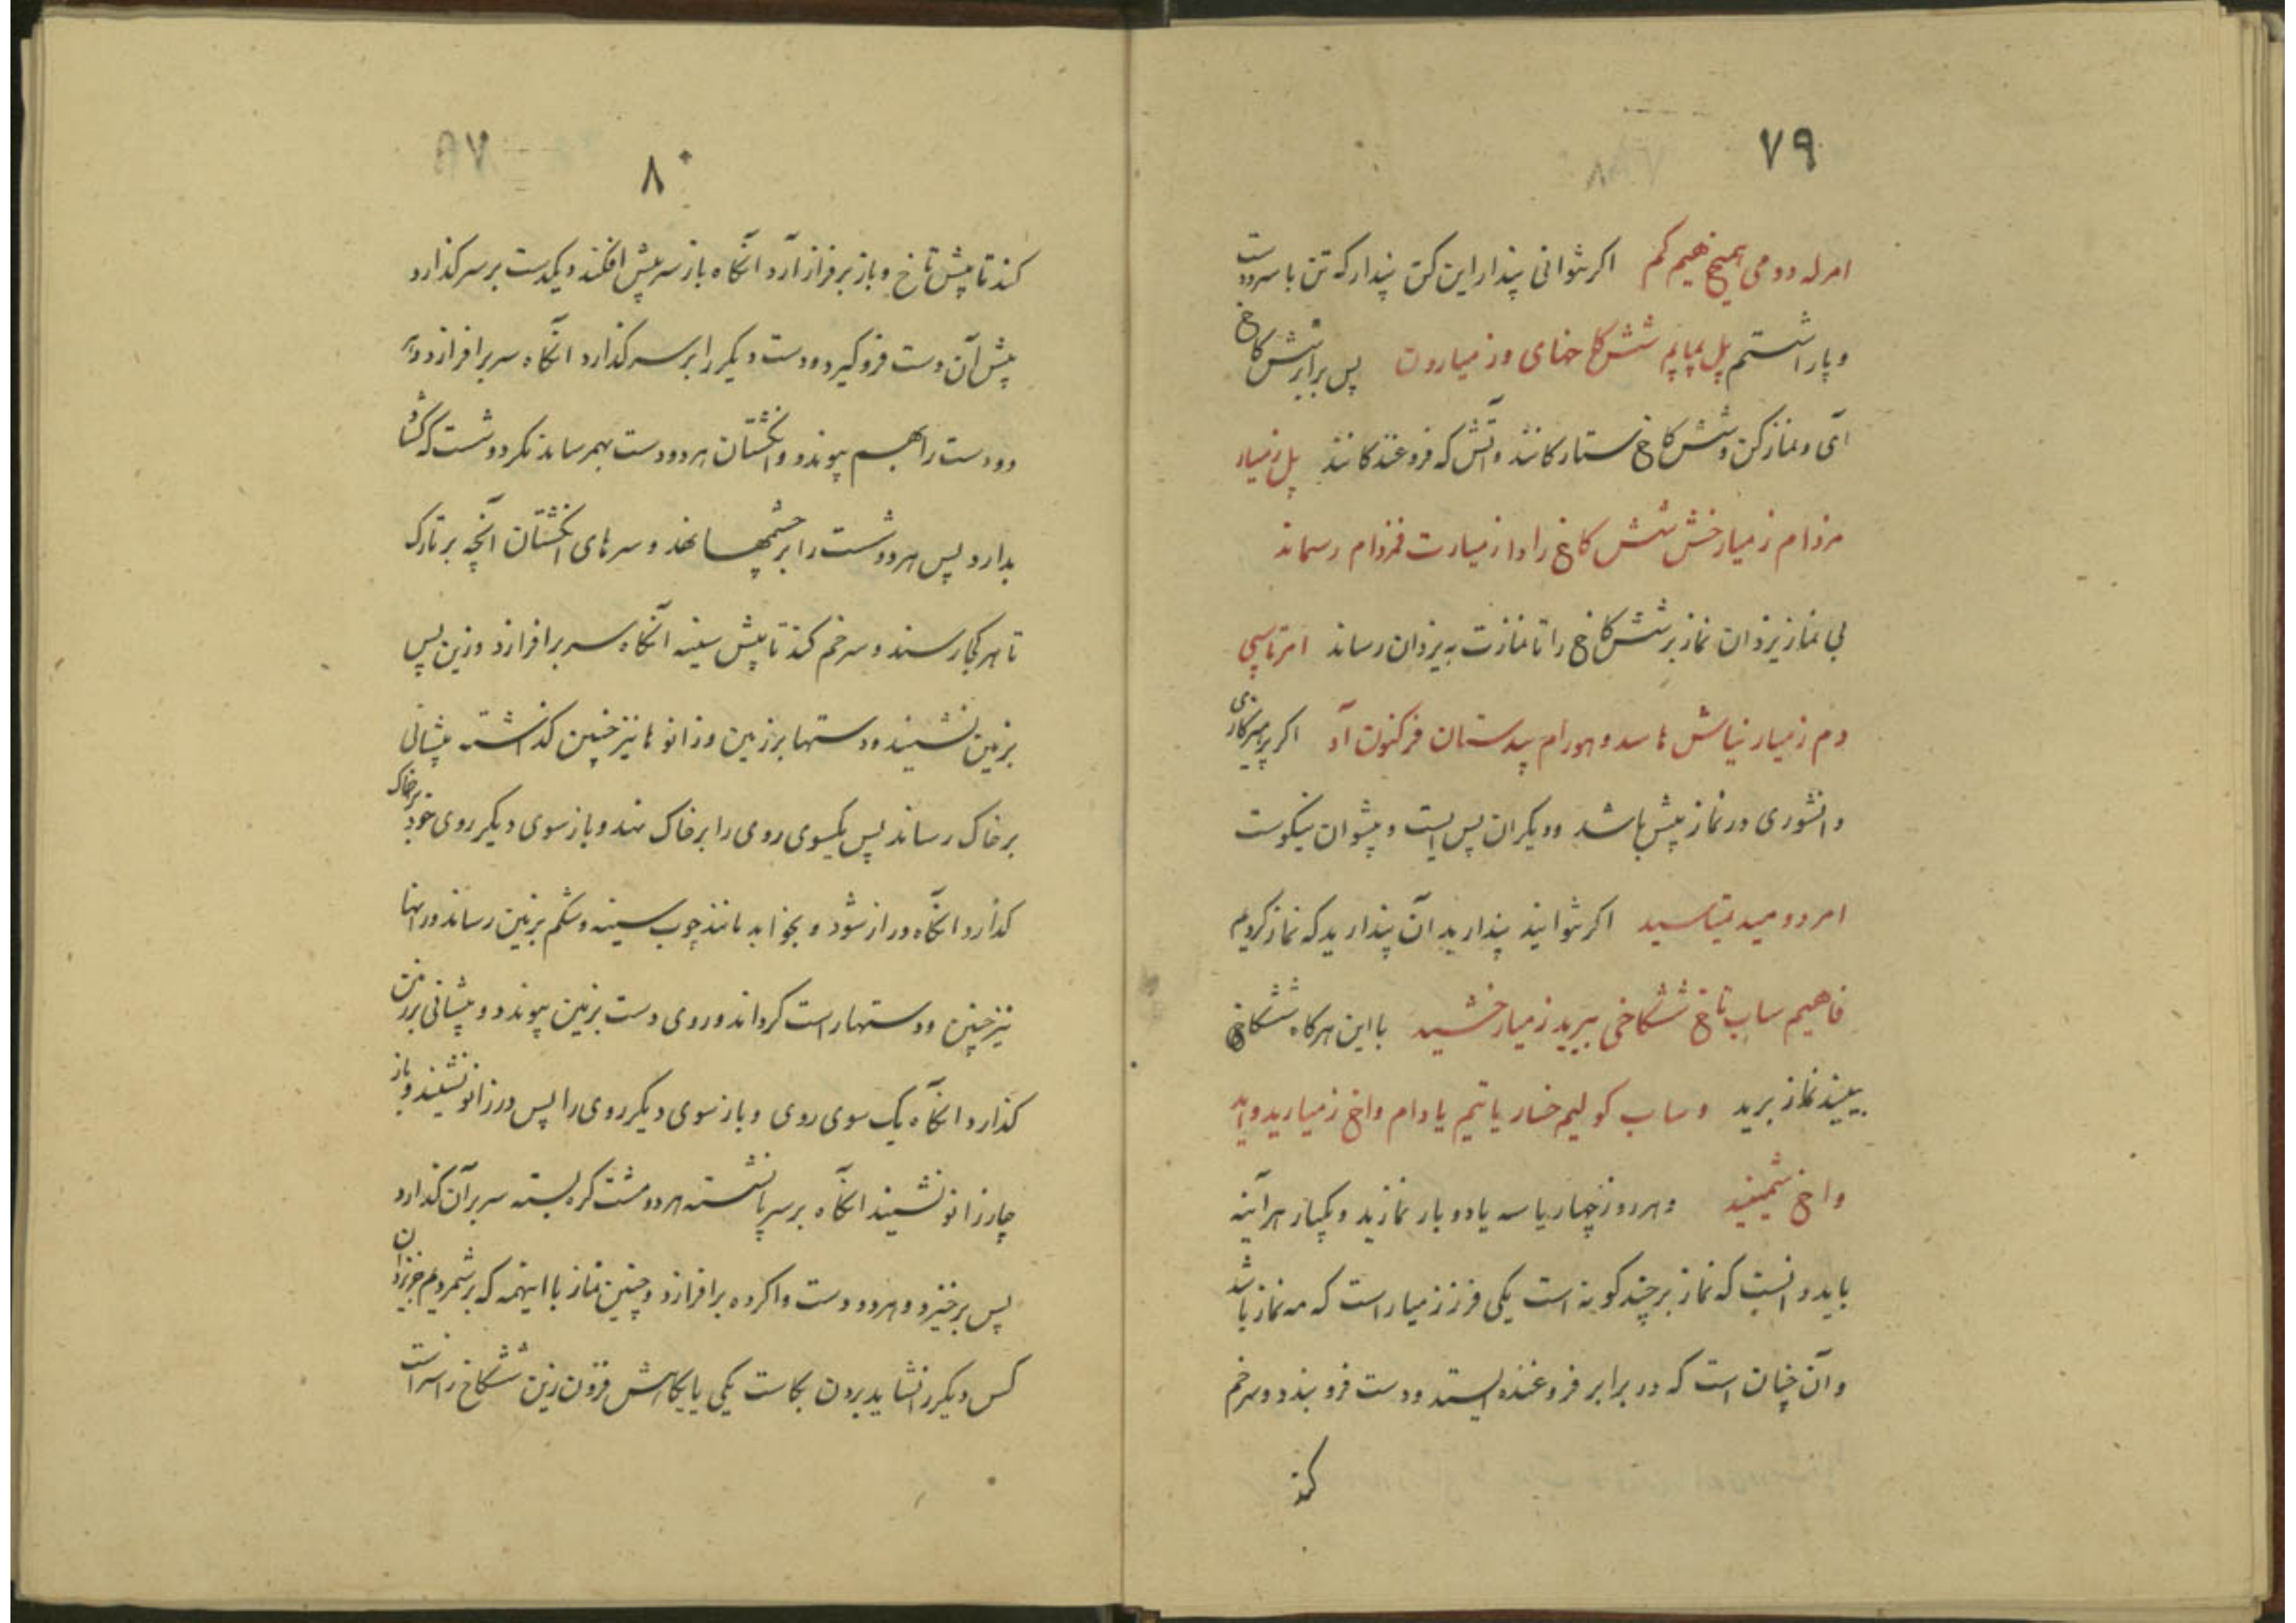 ٧٩
امرله دومی همیخ هیم کم اکر نتوانی پندار این کن پندار که تن با سرودست
و پا را شستم پل بمایم شش کاخ جهای وزمیارون پس برابر شش کاخ
آی و نماز کن و شش کاخ ستارکانند و آتش که فروغندکانند پل زمیار
مزدام زمیار خش شش کاخ را وا زمیارت فمزدام رسماند
پی نماز یزدان نماز بر شش کاخ را تا نمازت به یزدان رساند امرتاسپی
دم زمیار نیاش هاسد و هورام پیدستان فرکنون آد اکر پرهیزکاری
دانشوری در نماز پیش باشد و دیکران پس ایست و پیشوان نیکوست
امر دومیید یمتاسید اکر نتوانید پندارید آن پندارید که نماز کردیم
فاهیم ساب تاخ ششکاخی بیرید زمیار خشید با این هر کاه ششکاخ
ببینید نماز برید و ساب کولیم خسار یاتیم یا دام واخ زمیارید واید
واخ شیمیید و هر روز چهار یا سه یا دو بار نمازید و یکبار هر آینه
باید دانست که نماز بر چند کونه است یکی فرززمیار است که مه نماز باشد
و آن چنان است که در برابر فروغنده ایستد و دست فرو بندد و سر خم
کند
٨٠
کند تا پیش تاخ و باز بر فراز آرد آنکاه باز سر پیش افکند و یکدست بر سر کذارد
پیش آن دست فرو کیرد و دست دیکر را بر سر کذارد آنکاه سر بر افرازد و
دو دست را بهم پیوندد و انکشتان هر دو دست بهم رساند مکر دو شست که کشاد
بدارد پس هر دو شست را بر چشمها نهد و سرهای انکشتان آنچه بر تارک
تا هر کجا رسند و سر خم کند تا پیش سینه آنکاه سر بر افرازد و زین پس
بزمین نشیند و دستها بر زمین و زانوها نیز چنین کذاشته پیشانی
بر خاک رساند پس یکسوی روی را بر خاک نهد و باز سوی دیکر روی خود بر خاک
کذارد آنکاه دراز شود و بخوابد مانند چوب سینه و شکم بزمین رساند و رانها
نیز چنین و دستها راست کرداند و روی دست بزمین پیوندد و پیشانی بر زمین
کذارد آنکاه یک سوی روی و باز سوی دیکر روی را پس در زانو نشیند و باز
چارزانو نشیند آنکاه بر سر پا نشسته هر دو مشت کره بسته سر بر آن کذارد
پس برخیزد و هر دو دست واکرده بر افرازد و چنین نماز با اینهمه که بر شمردیم جز یزدان
کس دیکر را نشاید بردن بکاست یکی یا بکاهش فزون زین ششکاخ را سزاست